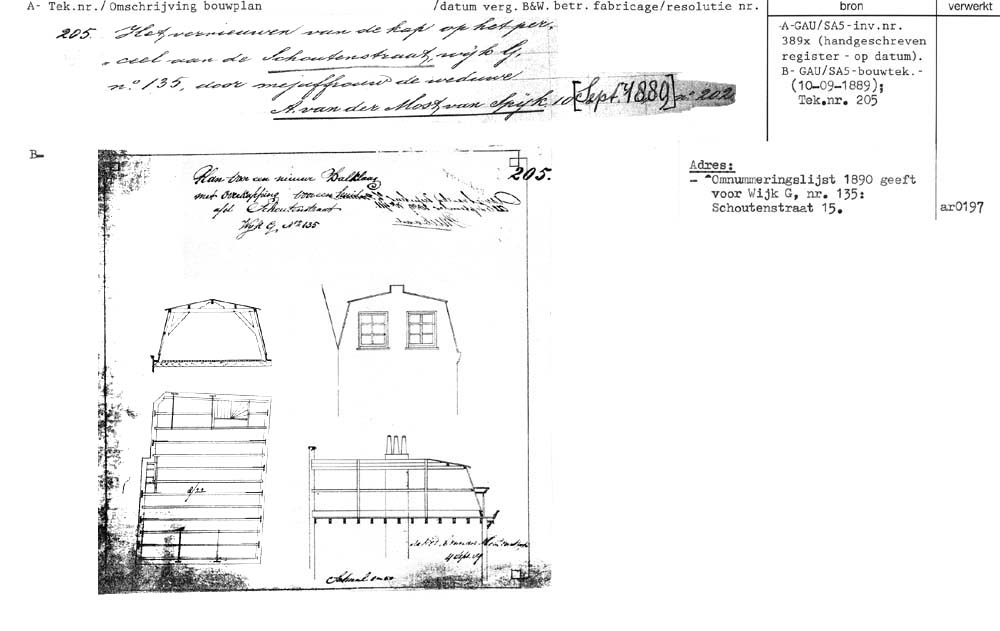 A- Tek.nr./Omschrijving bouwplan /datum verg. B&W. betr. fabricage/resolutie nr. bron verwerkt
205. Het vernieuwen van de kap op het per-
ceel aan de Schoutenstraat, wijk G,
no. 135, door mejuffrouw de weduwe
A. van der Most van Spijk. 10 [Sept. 1889] no 202
A-GAU/SA5-inv.nr.
389x (handgeschreven
register - op datum).
B- GAU/SA5-bouwtek.-
(10-09-1889);
Tek.nr. 205
B-
205.
Plan voor een nieuwe Balklaag
met overkapping voor een huis
a/d Schoutenstraat
Wijk G, No 135
Adres:
- Omnummeringslijst 1890 geeft
voor Wijk G, nr. 135:
Schoutenstraat 15.
ar0197
8/22
Schaal